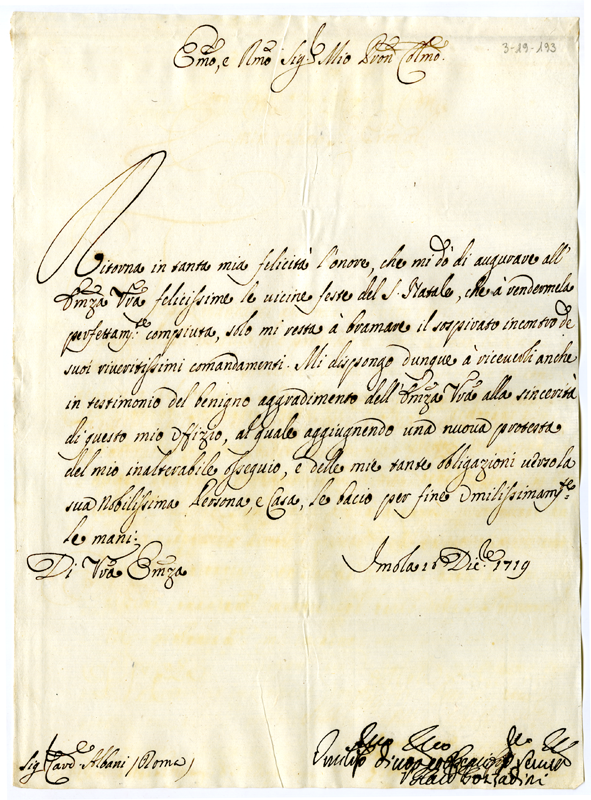 Em̃o, e Rm̃o Sig.r Mio Pron Colm̃o.
3-19-193
Ritorna in tanta mia felicità l'onore, che mi dò di augurare all'
Em̃za Vrã felicissime le vicine feste del S. Natale, che à rendermela
perfettam.te compiuta, solo mi resta à bramare il sospirato incontro de
suoi riveritissimi comandamenti. Mi dispongo dunque à riceverli anche
in testimonio del benigno aggradimento dell'Em̃za Vrã alla sincerità
di questo mio Offizio, al quale aggiugnendo una nuova protesta
del mio inalterabile ossequio, e delle mie tante obligazioni verso la
sua Nobilissima Persona, e Casa, le bacio per fine Umilissimam.te
le mani.
Di Vrã Em̃za
Imola Dic.re 1719
Sig.r Card.le Albani (Roma)
Umiliss Divotiss
Gozzadini